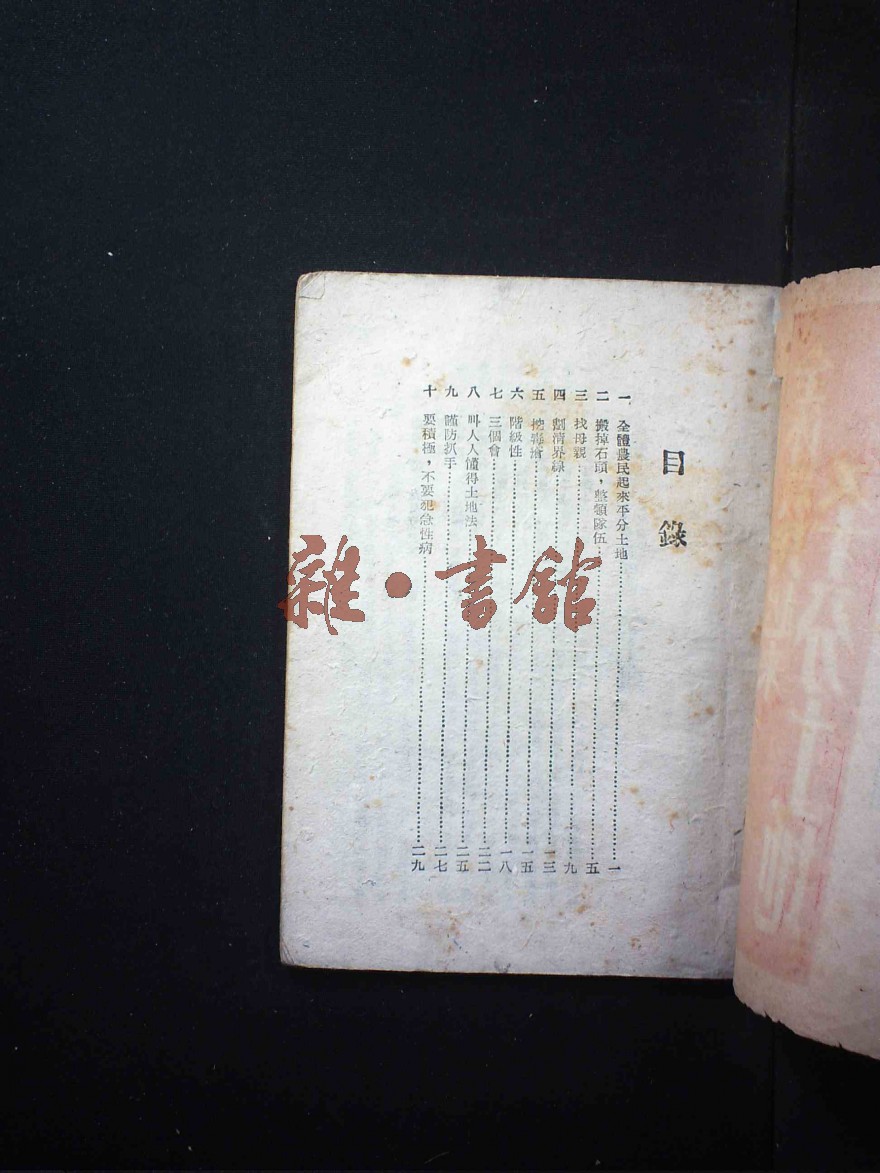 目錄
一 全體農民起來平分土地……一
二 搬掉石頭，整頓隊伍……五
三 找母親……九
四 劃清界線……一三
五 挖毒瘡……一五
六 階級性……一八
七 三個會……二二
八 叫人人懂得土地法……二五
九 謹防扒手……二七
十 要積極，不要犯急性病……二九
雜·書館